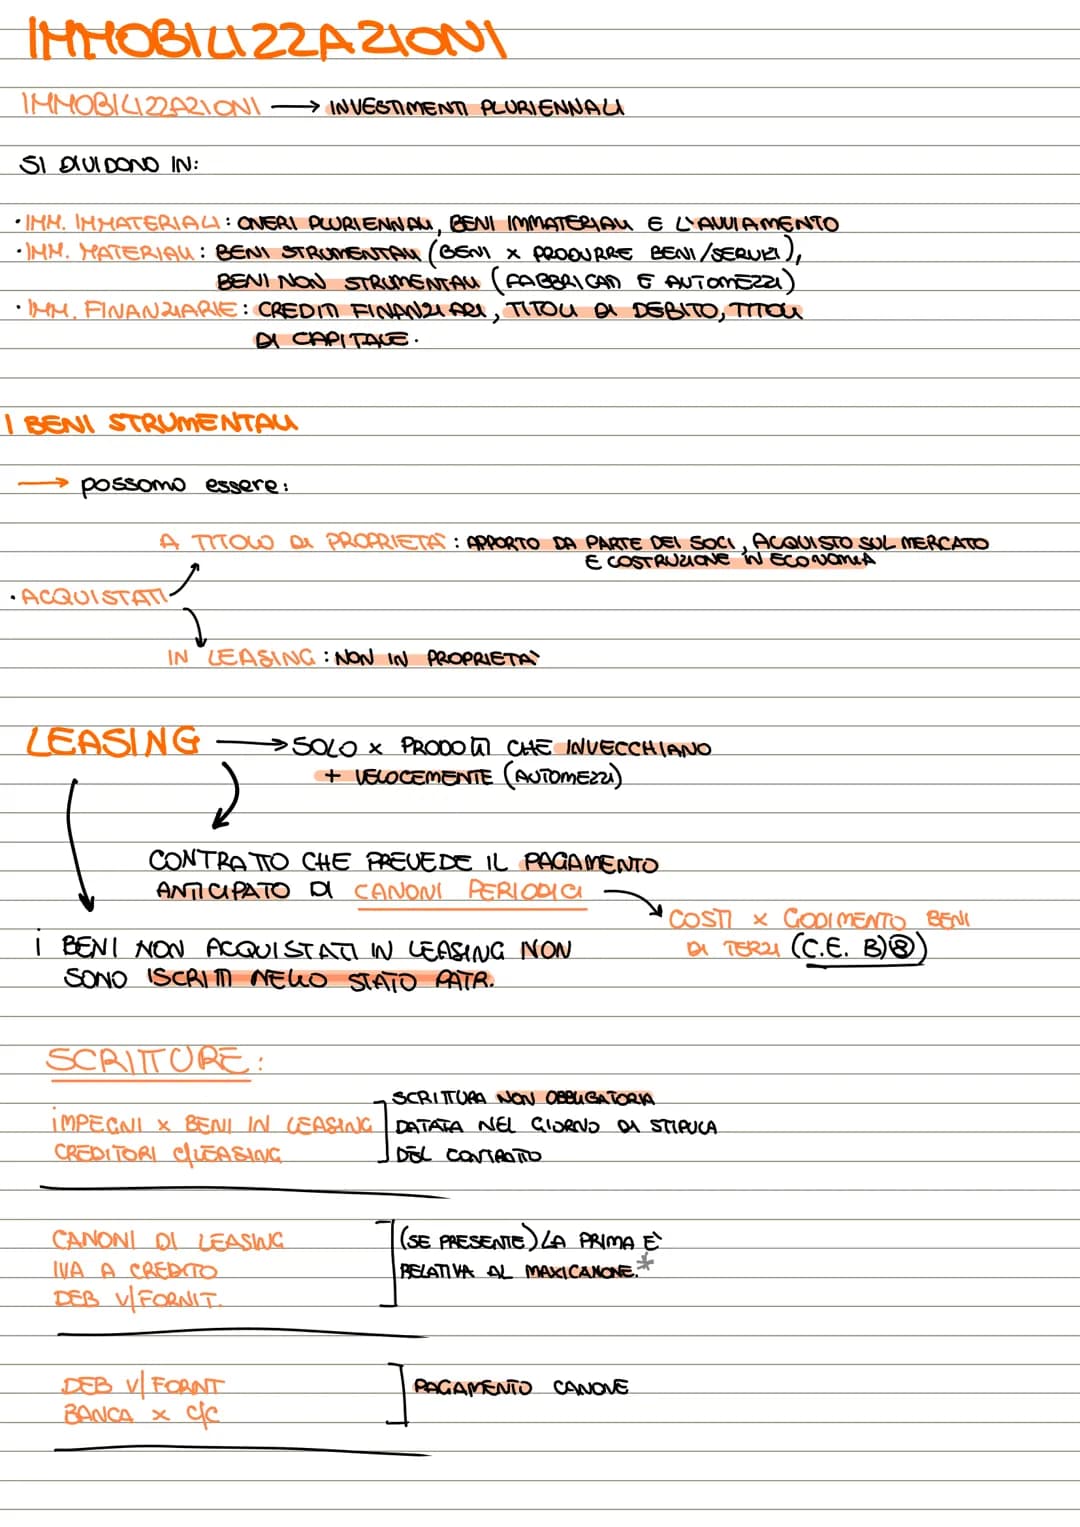 IMMOBILIZZAZIONI
IMMOBILIZZAZIONI → INVESTIMENTI PLURIENNALI
SI DIVIDONO IN:
• IMM. IMMATERIALI: ONERI PLURIENNALI, BENI IMMATERIALI E L'AVVIAMENTO
• IMM. MATERIALI: BENI STRUMENTALI (BENI x PRODURRE BENI/SERVIZI),
BENI NON STRUMENTALI (FABBRICATI E AUTOMEZZI)
• IMM. FINANZIARIE: CREDITI FINANZIARI, TITOLI DI DEBITO, TITOLI
DI CAPITALE.
I BENI STRUMENTALI
→ possomo essere:
A TITOLO DI PROPRIETÀ: APPORTO DA PARTE DEI SOCI, ACQUISTO SUL MERCATO
E COSTRUZIONE IN ECONOMIA
• ACQUISTATI
IN LEASING: NON IN PROPRIETA'
LEASING → SOLO x PRODOTTI CHE INVECCHIANO
+ VELOCEMENTE (AUTOMEZZI)
CONTRATTO CHE PREVEDE IL PAGAMENTO
ANTICIPATO DI CANONI PERIODICI
COSTI x GODIMENTO BENI
DI TERZI (C.E. B)⑧)
i BENI NON ACQUISTATI IN LEASING NON
SONO ISCRITTI NELLO STATO PATR.
SCRITTURE:
SCRITTURA NON OBBLIGATORIA
IMPEGNI x BENI IN LEASING DATATA NEL GIORNO DI STIPULA
CREDITORI C/LEASING DEL CONTRATTO
CANONI DI LEASING (SE PRESENTE) LA PRIMA E'
IVA A CREDITO RELATIVA AL MAXICANONE.*
DEB V/FORNIT.
DEB V/FORNT PAGAMENTO CANONE
BANCA x C/C